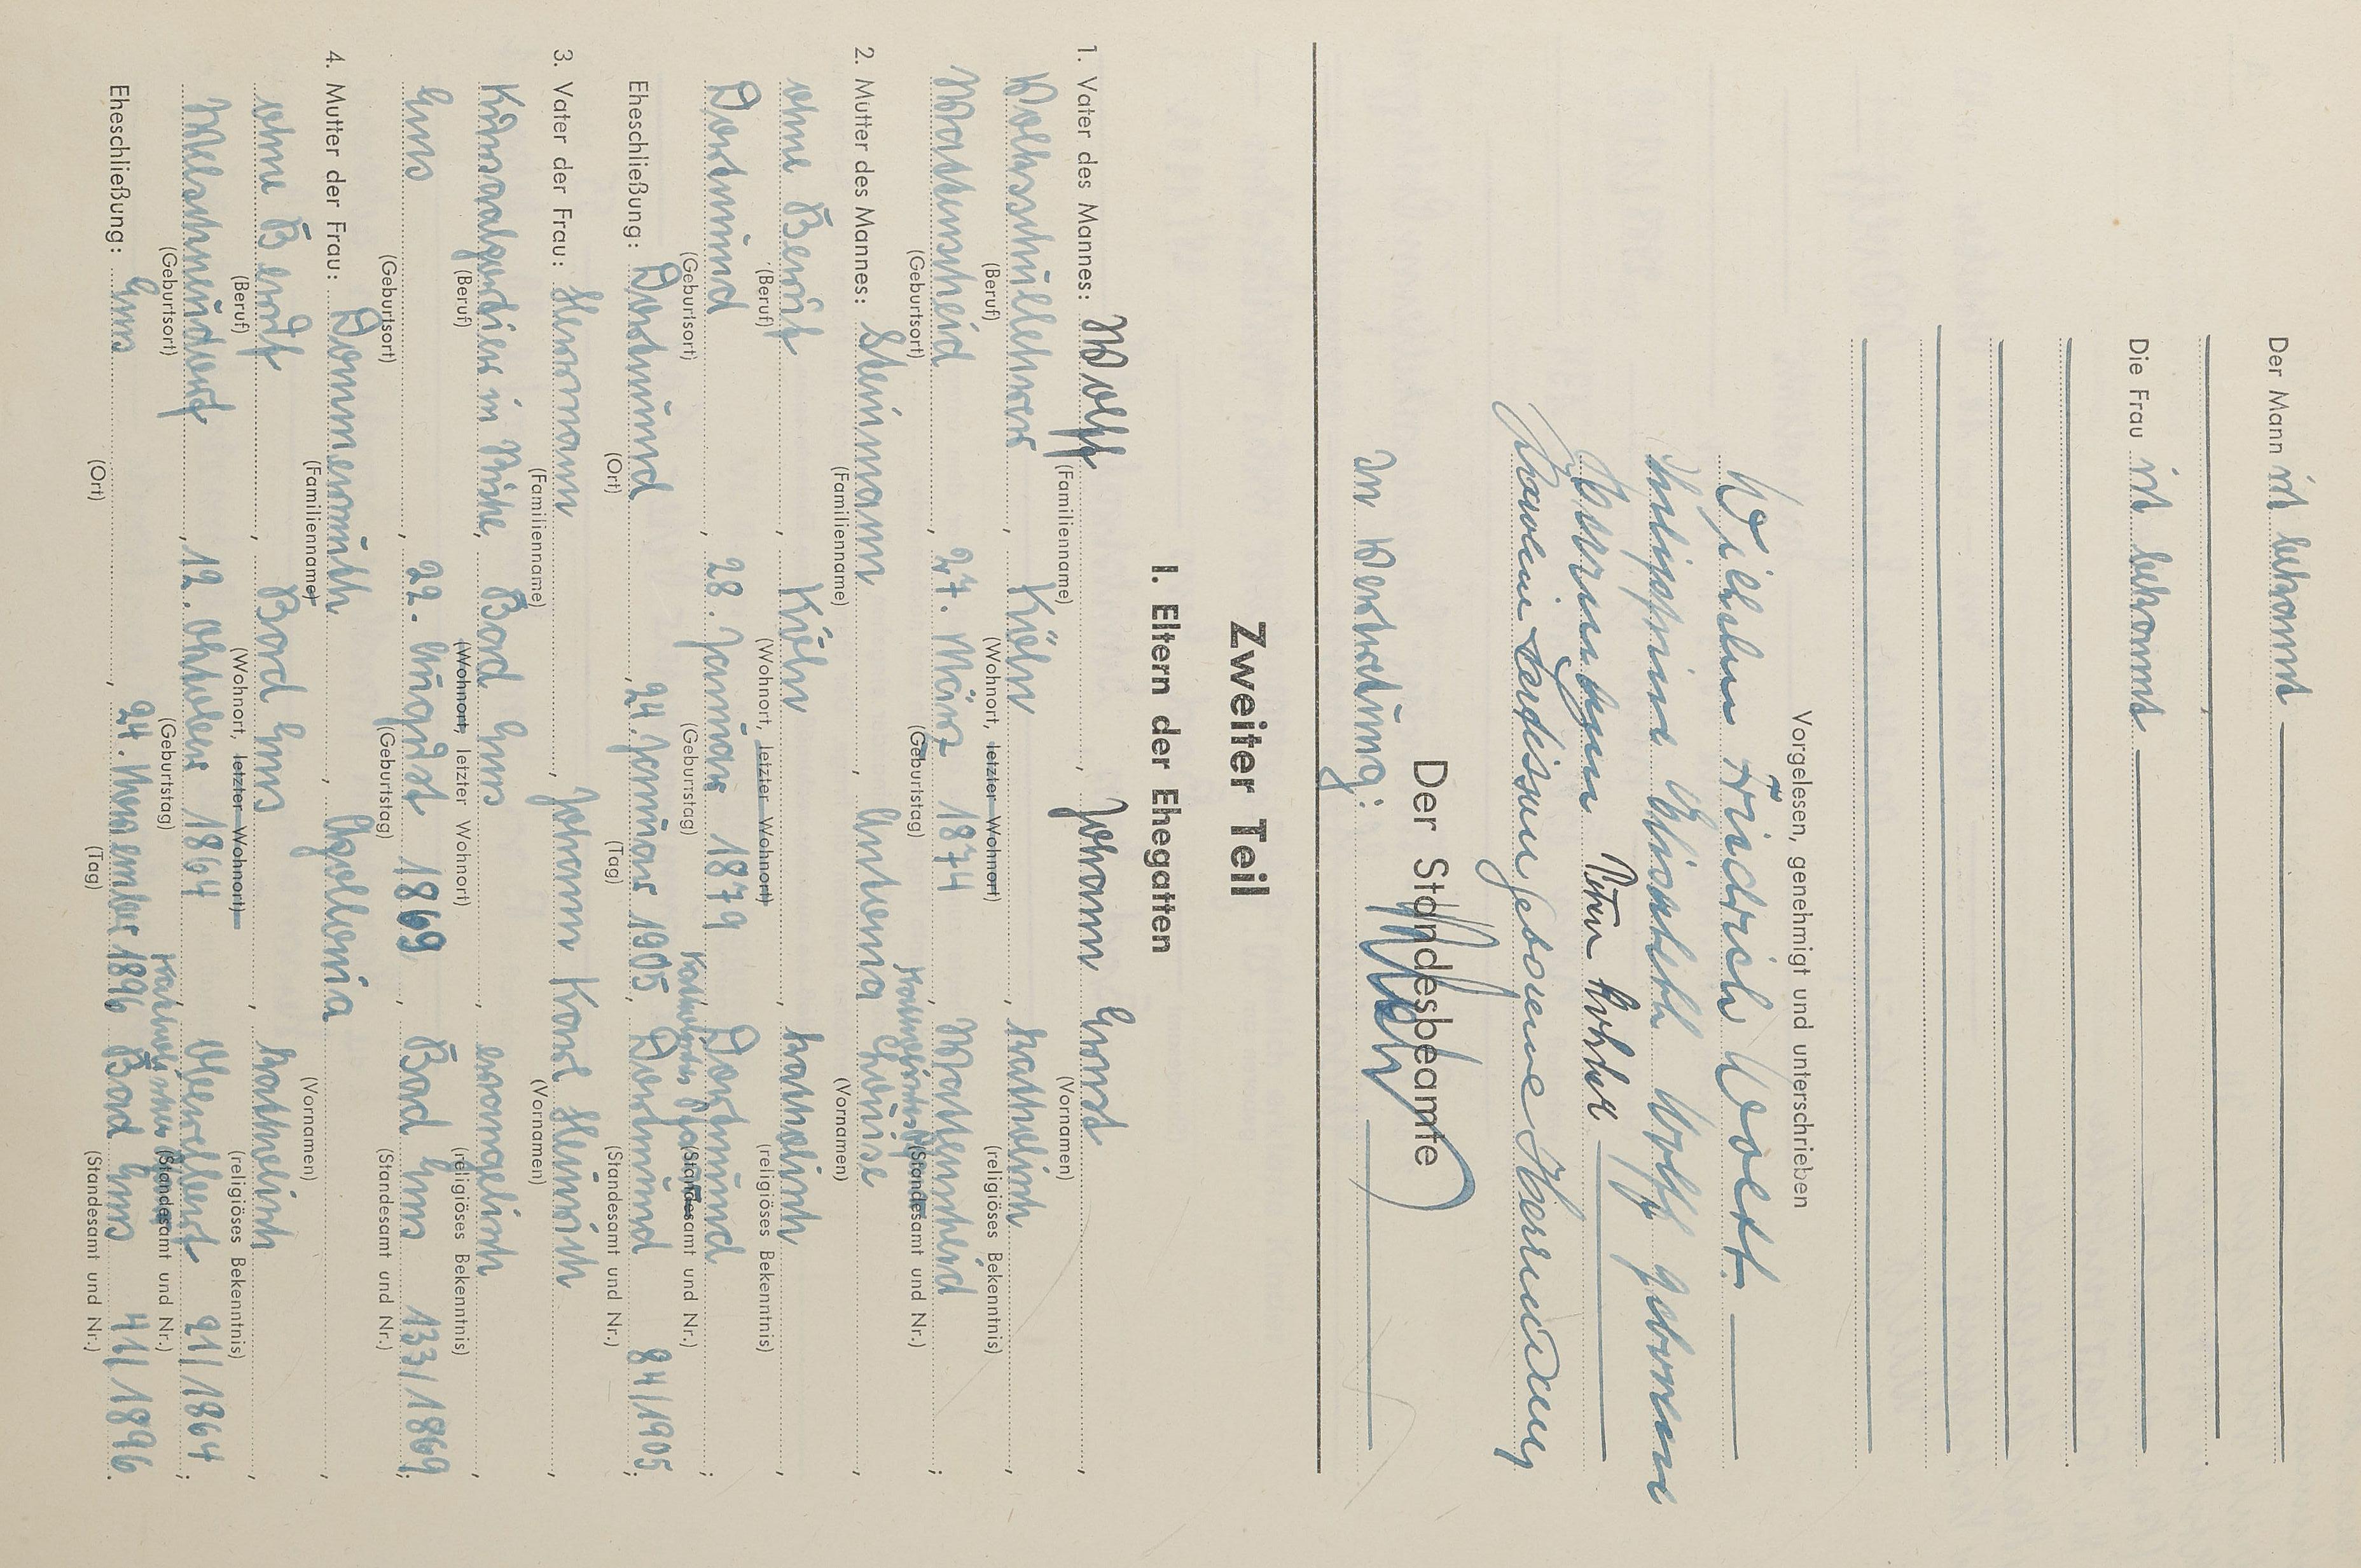 Der Mann ist bekannt
Die Frau ist bekannt
Vorgelesen, genehmigt und unterschrieben
Wilhelm Friedrich Wolff
Elisabeth Wolff geborene
Herrmann Peter
geborene Herrmann
Der Standesbeamte
In Vertretung:
Zweiter Teil
I. Eltern der Ehegatten
1. Vater des Mannes: Wolff, Johann Ernst,
(Familienname) (Vornamen)
Volksschullehrer, Köln, katholisch,
(Beruf) (Wohnort, letzter Wohnort) (religiöses Bekenntnis)
Wattenscheid, 27. März 1874, Wattenscheid;
(Geburtsort) (Geburtstag) (Standesamt und Nr.)
2. Mutter des Mannes: Steinmann, Antonia Louise,
(Familienname) (Vornamen)
ohne Beruf, Köln, katholisch,
(Beruf) (Wohnort, letzter Wohnort) (religiöses Bekenntnis)
Dortmund, 28. Januar 1879, Dortmund;
(Geburtsort) (Geburtstag) (Standesamt und Nr.)
Eheschließung: Dortmund, 24. Januar 1905, Dortmund 84/1905;
(Ort) (Tag) (Standesamt und Nr.)
3. Vater der Frau: Herrmann, Johann Karl Heinrich,
(Familienname) (Vornamen)
Kursaalportier in Ruhe, Bad Ems, evangelisch,
(Beruf) (Wohnort, letzter Wohnort) (religiöses Bekenntnis)
Ems, 22. August 1869, Bad Ems 133/1869;
(Geburtsort) (Geburtstag) (Standesamt und Nr.)
4. Mutter der Frau: Dommermuth, Apollonia,
(Familienname) (Vornamen)
ohne Beruf, Bad Ems, katholisch,
(Beruf) (Wohnort, letzter Wohnort) (religiöses Bekenntnis)
Welschneudorf, 12. Oktober 1864, 21/1864;
(Geburtsort) (Geburtstag) (Standesamt und Nr.)
Eheschließung: Ems, 24. November 1896 Bad Ems 41/1896.
(Ort) (Tag) (Standesamt und Nr.)